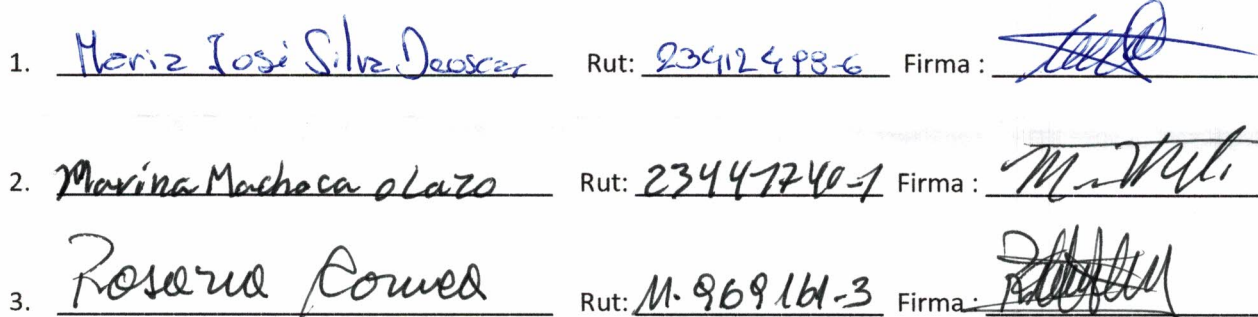 1. Maria José Silva Deoscar Rut: 23412498-6 Firma :
2. Marina Machaca olazo Rut: 23441740-1 Firma :
3. Rosaria Correa Rut: 11.969161-3 Firma :